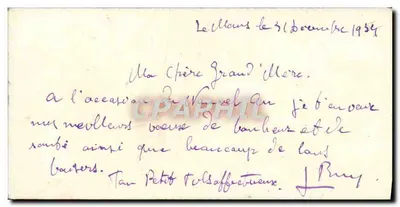 Le Mans le 31 Décembre 1934
Ma chère Grand'Mère.
A l'occasion du Nouvel An je t'envoie
mes meilleurs voeux de bonheur et de
santé ainsi que beaucoup de bons
baisers.
Ton Petit Fils affectueux.